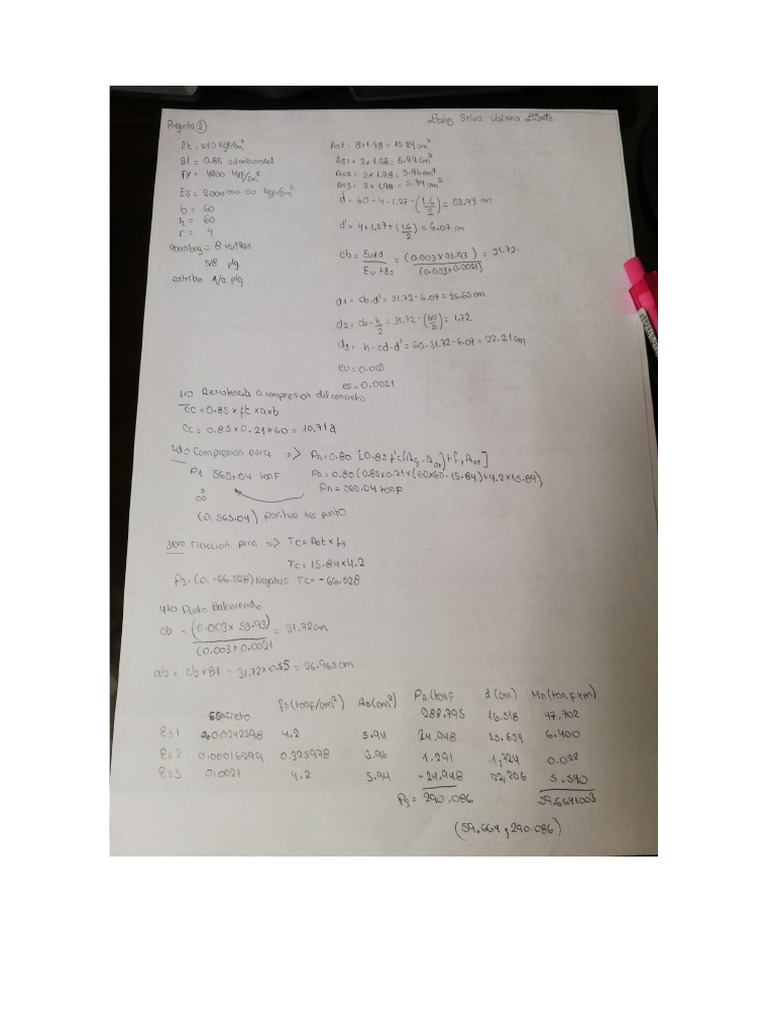 Pregunta 2
López Silva Valeria Lizeth
f'c = 210 kgf/cm²
B1 = 0.85 adimensional
fy = 4200 kgf/cm²
Es = 2000000.00 kgf/cm²
b = 60
h = 60
r = 4
8 varillas
5/8 plg
estribo 1/2 plg
Ast = 8*1.98 = 15.84 cm²
As1 = 3 x 1.98 = 5.94 cm²
As2 = 2 x 1.98 = 3.96 cm²
As3 = 3 x 1.98 = 5.94 cm²
d = 60 - 4 - 1.27 - (1.6/2) = 53.93 cm
d' = 4 + 1.27 + (1.6/2) = 6.07 cm
cb = Eu x d / Eu + Es = (0.003 x 53.93) / (0.003 + 0.0021) = 31.72
d1 = cb - d' = 31.72 - 6.07 = 25.65 cm
d2 = cb - h/2 = 31.72 - (60/2) = 1.72
d3 = h - cd - d' = 60 - 31.72 - 6.07 = 22.21 cm
eu = 0.003
es = 0.0021
1ro Resistencia a compresion del concreto
Cc = 0.85 x f'c x a x b
Cc = 0.85 x 0.21 x 60 = 10.71 a
2do Compresion pura => Pn = 0.80 [0.85 f'c (Ag - Ast) + fy Ast]
P1 565.04 tonf
Pn = 0.80 (0.85 x 0.21 x (60 x 60 - 15.84) + 4.2 x 15.84)
Pn = 565.04 tonf
(0, 565.04) positivo 1er punto
3ero traccion pura => Tc = Ast x fy
Tc = 15.84 x 4.2
P2 = (0, -66.528) Negativo Tc = -66.528
4to Punto Balanceado
cb = (0.003 x 53.93) / (0.003 + 0.0021 = 31.72 cm
ab = cb x B1 = 31.72 x 0.85 = 26.965 cm
fs (tonf/cm²) As (cm²) Pn (tonf d (cm) Mn (tonf x m)
concreto 288.795 16.518 47,702
Es1 0.00242598 4.2 5.94 24.948 25.654 6.400
Es2 0.00016299 0.325978 3.96 1.291 1,724 0.022
Es3 0.0021 4.2 5.94 -24.948 22,206 5.540
P3 = 290.086 59.6641003
(59.664, 290.086)